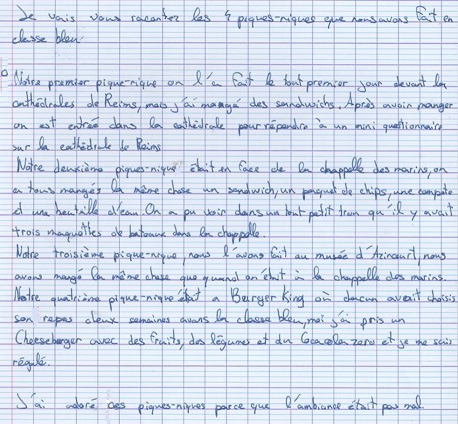 Je vais vous raconter les 4 piques-niques que nous avons fait en
classe bleu.
Notre premier pique-nique on l'a fait le tout premier jour devant la
cathédrales de Reims, mais j'ai mangé des sandwichs. Après avoir manger
on est entrée dans la cathédrale pour répondre à un mini questionnaire
sur la cathédrale de Reims
Notre deuxième piques-nique était en face de la chappelle des marins, on
a tous mangés la même chose un sandwich, un paquet de chips, une compote
et une bouteille d'eau. On a pu voir dans un tout petit trou qu'il y avait
trois maquettes de bateaux dans la chappelle.
Notre troisième pique-nique, nous l'avons fait au musée d'Azincourt, nous
avons mangé la même chose que quand on était à la chappelle des marins.
Notre quatrième pique-nique était a Burger King où chacun avait choisis
son repas deux semaines avant la classe bleu, moi j'ai pris un
Cheeseberger avec des fruits, des légumes et du Cocacola zero et je me suis
régalé.
J'ai adoré ces piques-niques parce que l'ambiance était pas mal.